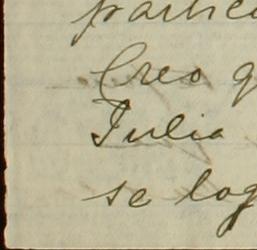 Creo q
Julia
se log